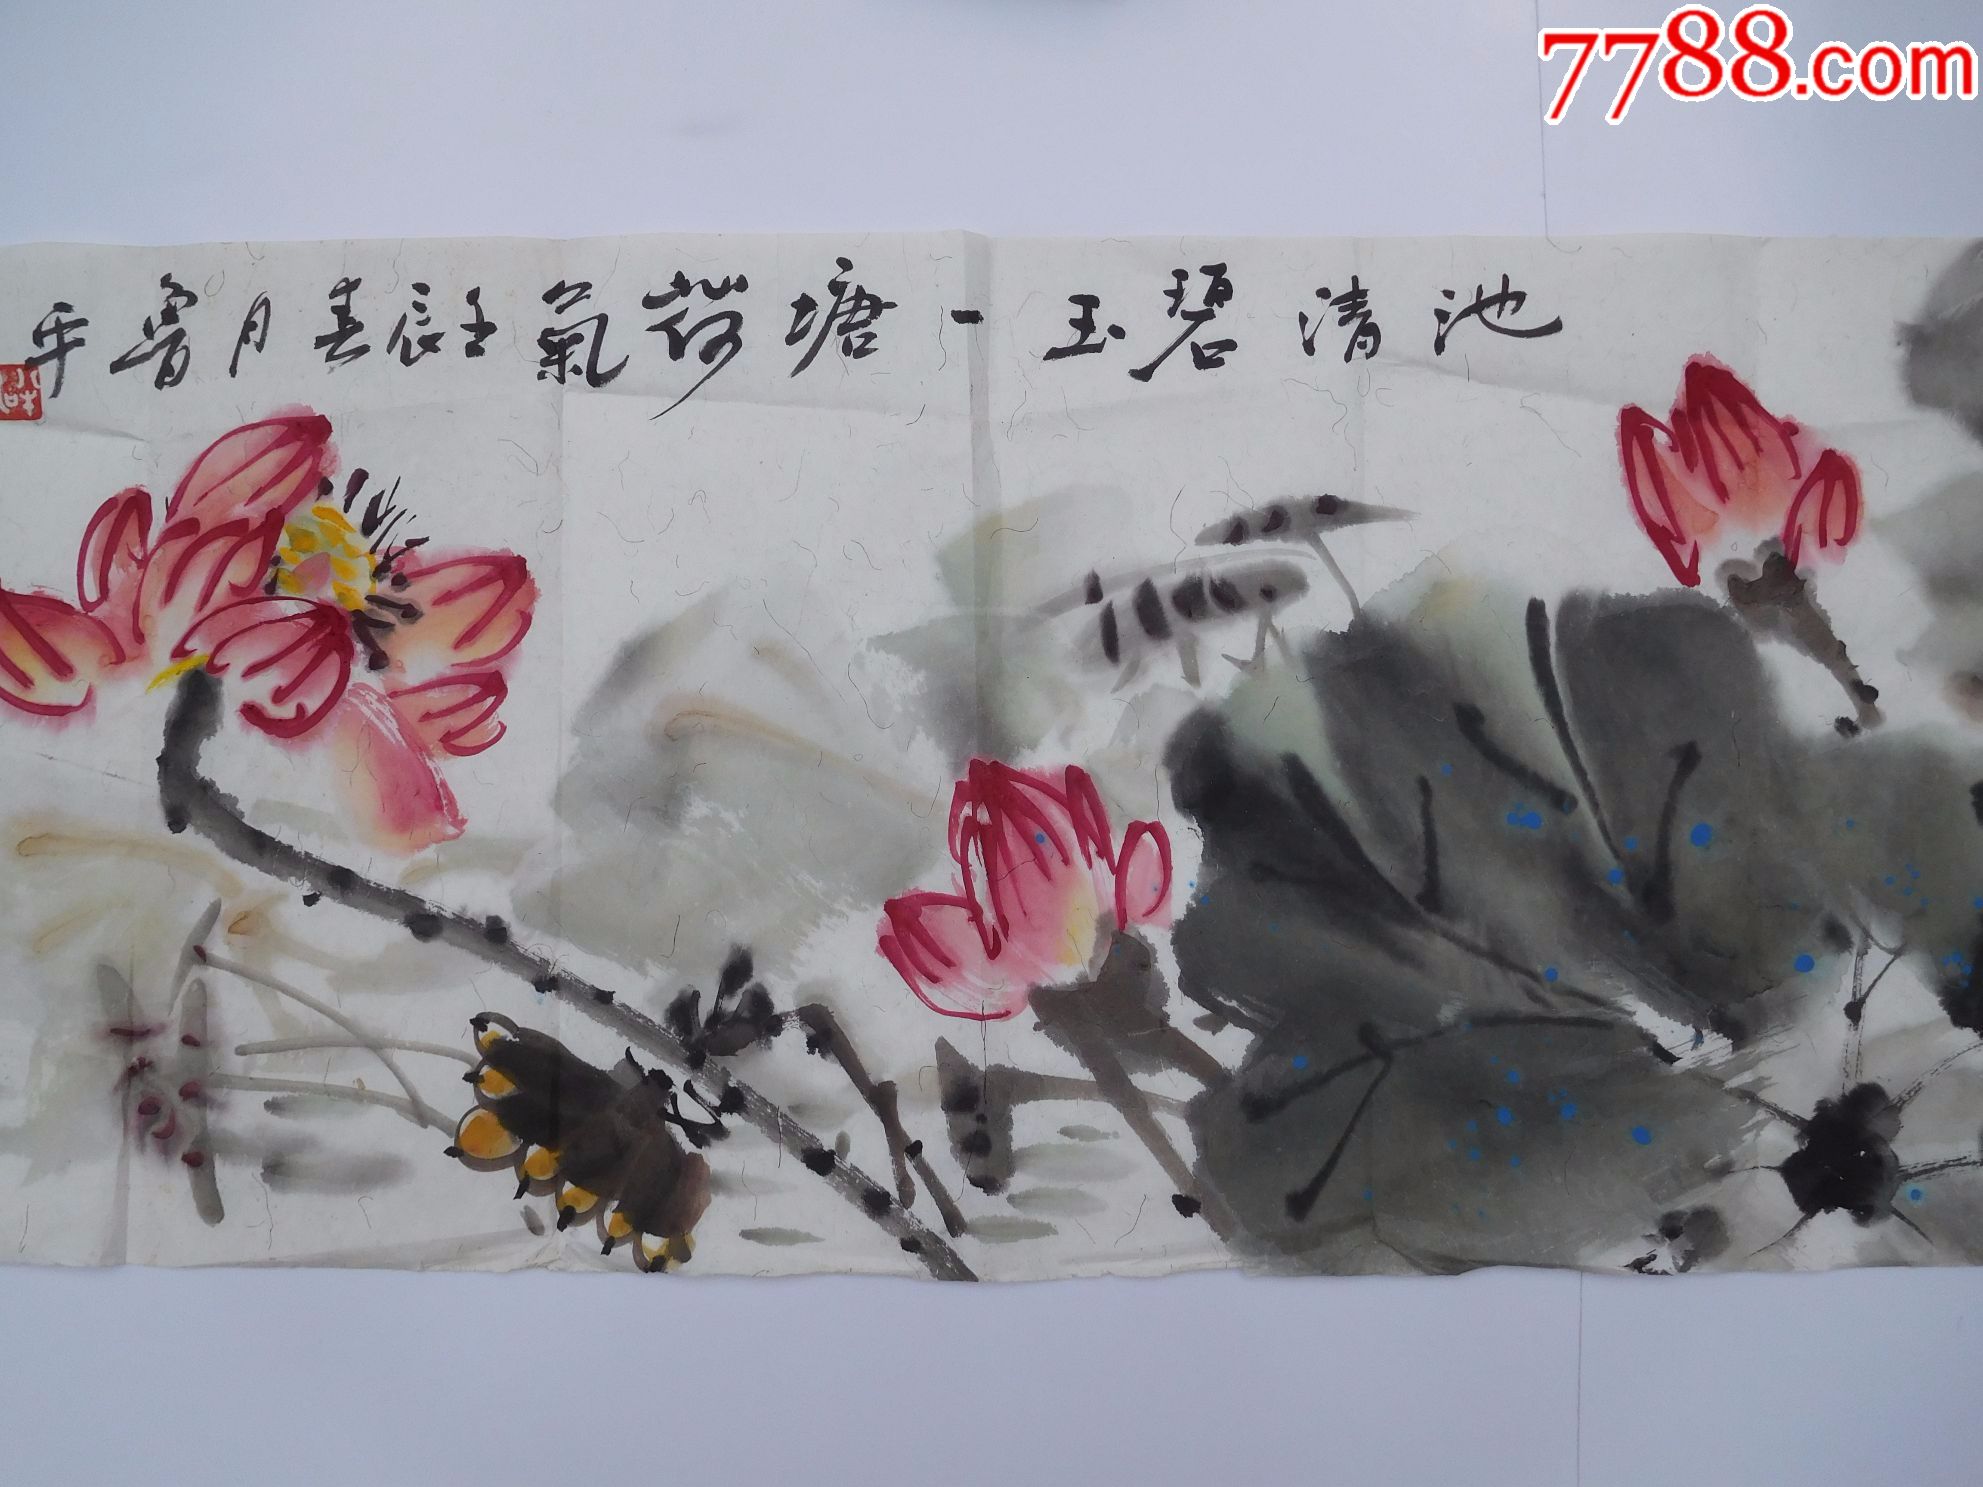 7788.com
池清碧玉一塘荷氣壬辰春月魯平